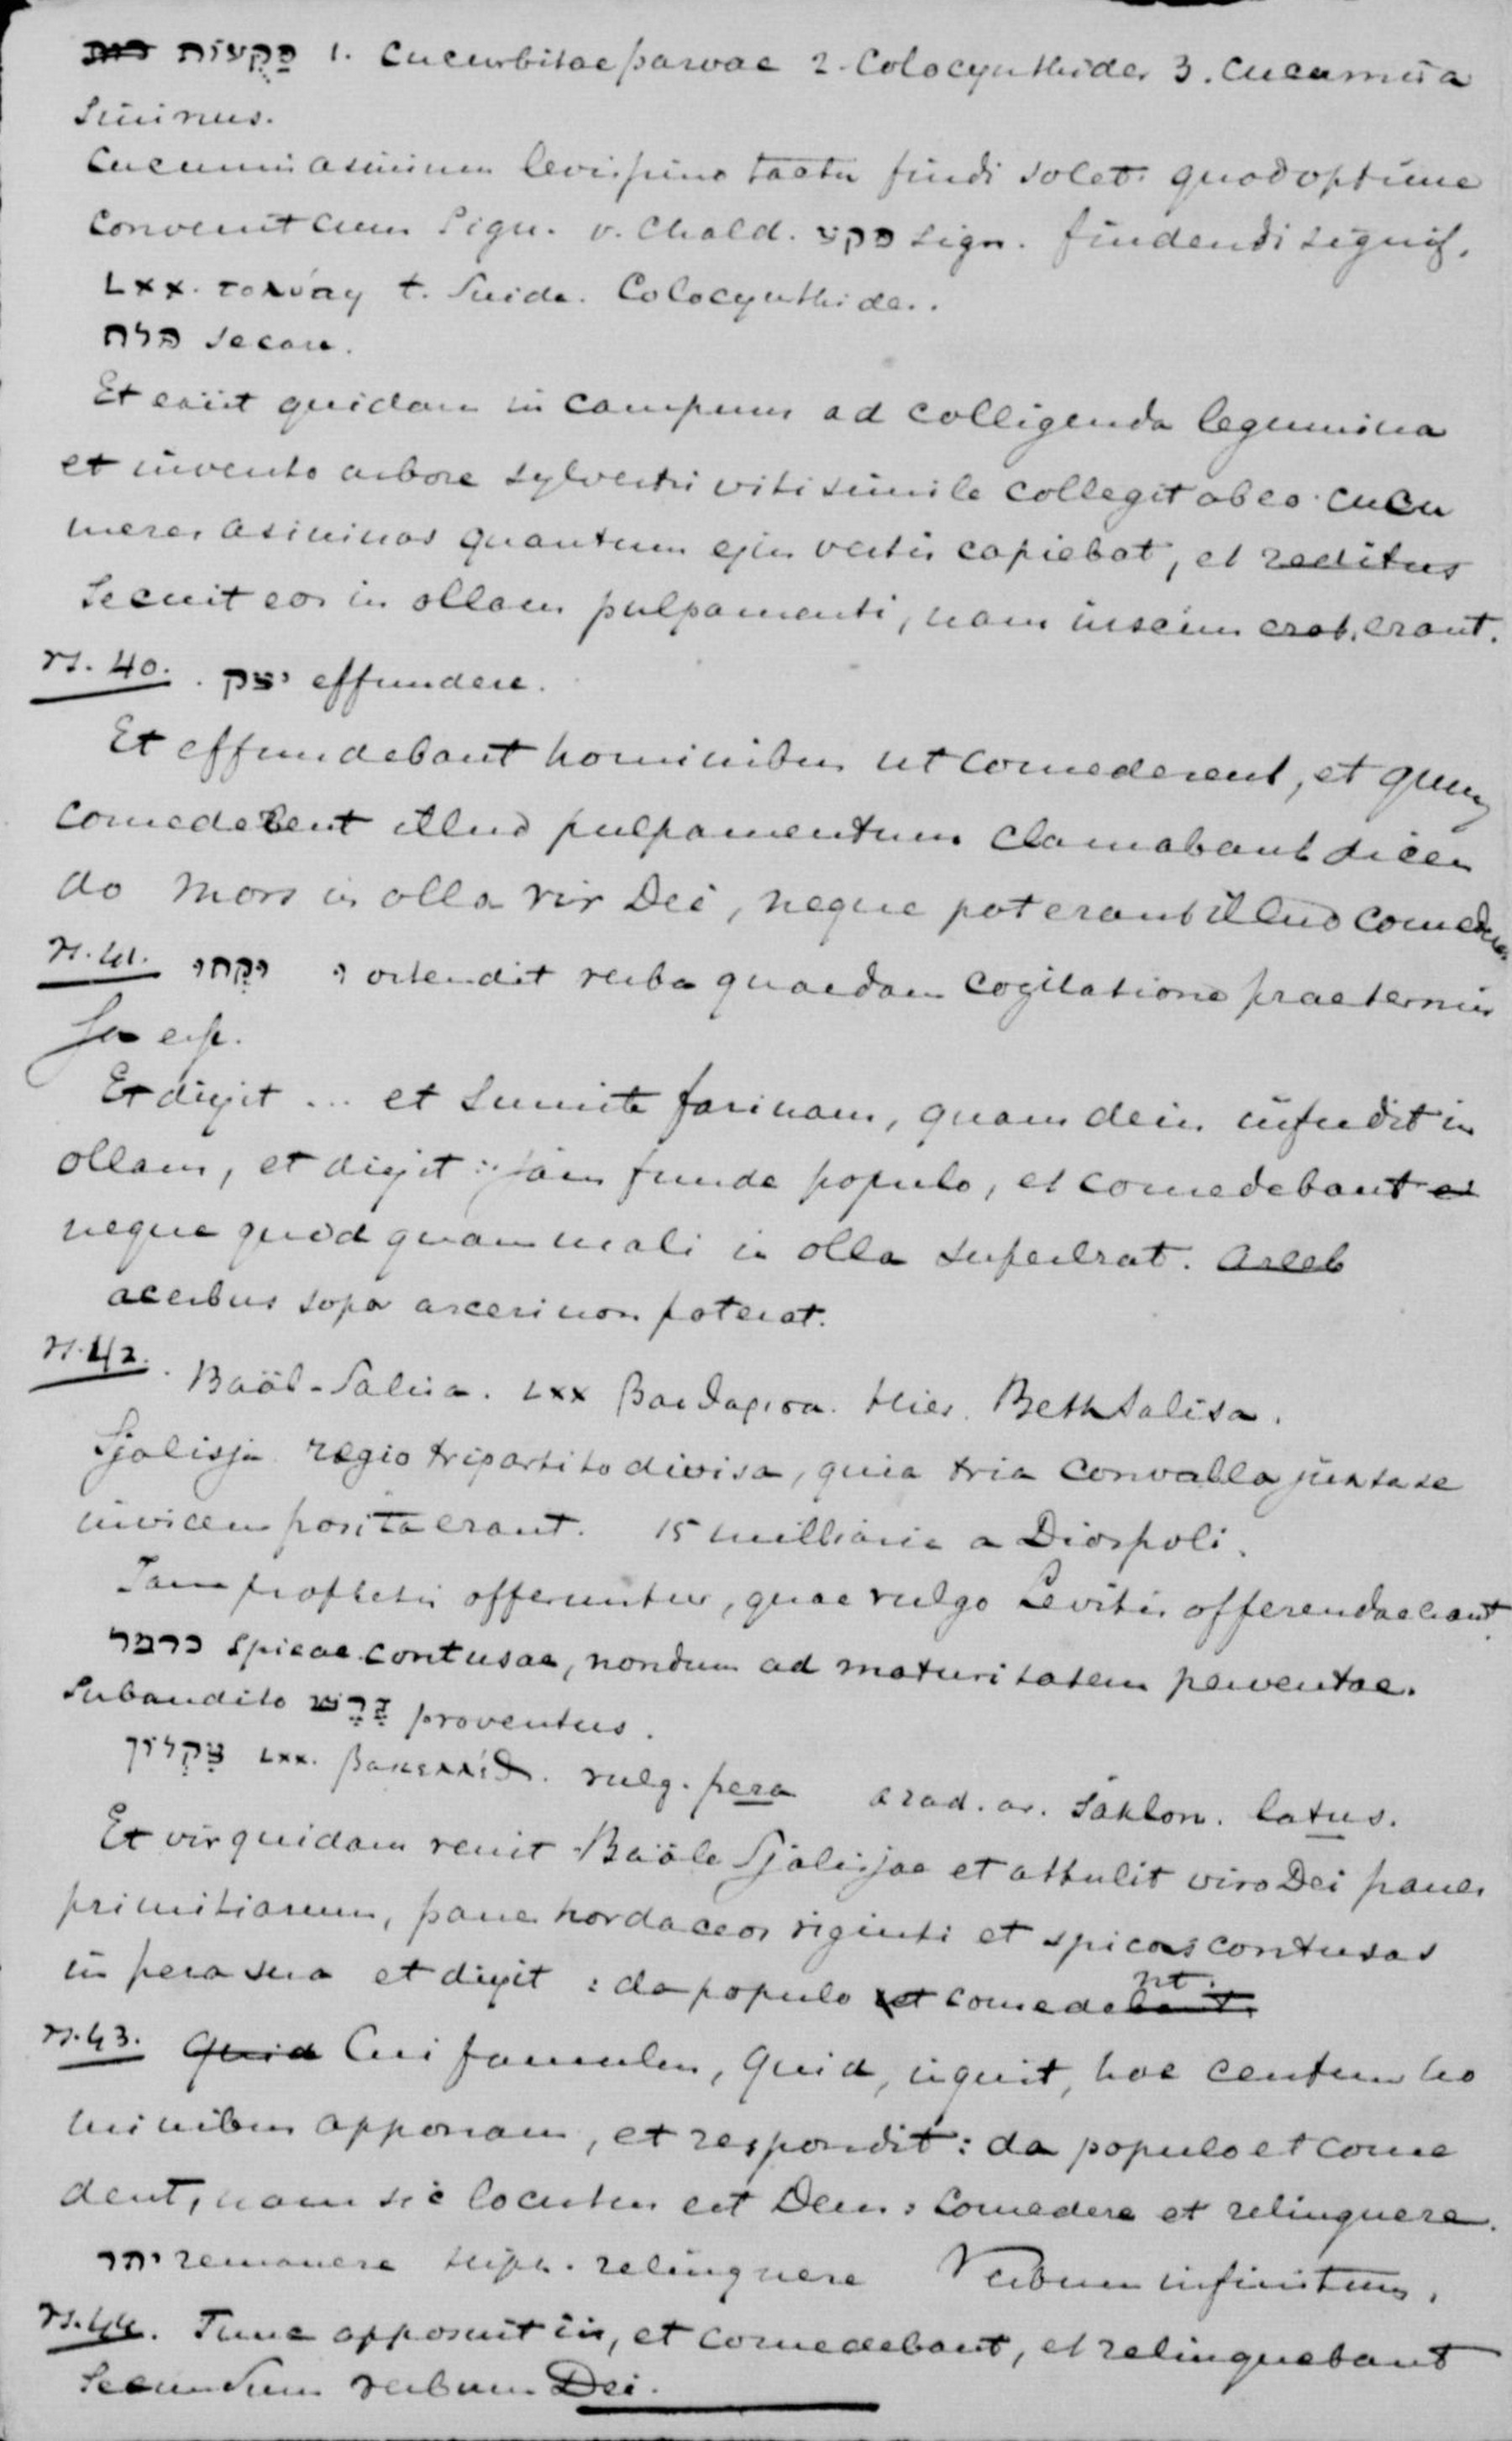 פַּקֻּעוֹת 1. Cucurbitae parvae 2. Colocynthides 3. Cucumis a
sininus.
Cucumis asininum levissimo tactu findi solet. quod optime
convenit cum sign. v. Chald. פקע sign. findendi signif.
LXX. τολύπη t. Suida. Colocynthide..
פלח secare.
Et exiit quidam in campum ad colligenda legumina
et invento arbore sylvestri viti simile collegit ab eo cucu
meres asininos quantum ejus vestis capiebat, et reditus
secuit eos in ollam pulpamenti, nam inscii erat, erant.
vs. 40. יצק effundere.
Et effundebant hominibus ut comederent, et quum
comederent illud pulpamentum clamabant dicen
do mors in olla vir Dei, neque poterant illud comedere
vs. 41. וקחו ו ostendit verba quaedam cogitatione praetermis
sa esse.
Et dixit ... et sumite farinam, quam dein infudit in
ollam, et dixit: jam funde populo, et comedebant et
neque quidquam mali in olla supererat.
acerbus sapor arceri non poterat.
vs. 42. Baäl-Salisa. LXX Βαιθαρισα. Hier. Beth Salisa.
Sjalisja regio tripartito divisa, quia tria convalla juxta se
invicem posita erant. 15 milliaria a Diospoli.
Jam prophetis offeruntur, quae vulgo Levitis offerenda erant
כרמל spicae contusae, nondum ad maturitatem perventae.
Subaudito גֶּרֶשׂ proventus.
צִקְלוֹן LXX. vulg. pera arad. ar. saklon. latus.
Et vir quidam venit Baäle Sjalisjae et attulit viro Dei panes
primitiarum, panes hordaceos viginti et spicas contusas
in pera sua et dixit : da populo ut comedant.
vs. 43. Quid Cui famulus, Quid, inquit, hoc centum ho
minibus apponam, et respondit: da populo et come
dent, nam sic locutus est Deus: comedere et relinquere.
יתר remanere hiph. relinquere Verbum infinitum.
vs. 44. Tunc apposuit iis, et comedebant, et relinquebant
secundum verbum Dei.